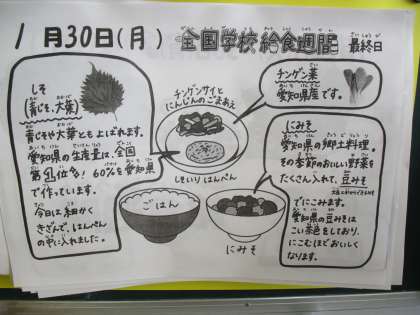 1月30日(月) 全国学校給食週間 最終日
しそ
(青じそ、大葉)
青じそや大葉ともよばれます。
愛知県の生産量は、全国
第1位！60%を愛知県
で作っています。
今日は細かく
きざんで、はんぺん
の中に入れました。
チンゲンサイと
にんじんのごまあえ
しそいりはんぺん
ごはん
にみそ
チンゲン菜
愛知県産です。
にみそ
愛知県の郷土料理。
その季節のおいしい野菜を
たくさん入れて、豆みそ
でにこみます。
愛知県の豆みそは
こい茶色をしており、
にこむほどおいしく
なります。